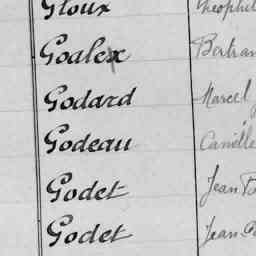 Gloux
Goalex Bertran
Godard Marcel
Godeau Camille
Godet Jean
Godet Jean